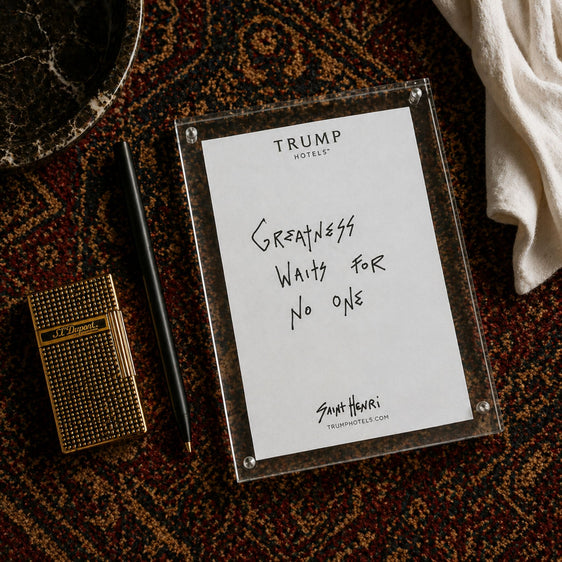 TRUMP
HOTELS™
GREATNESS
WAITS FOR
NO ONE
SAINT HENRI
TRUMPHOTELS.COM
S.T. Dupont